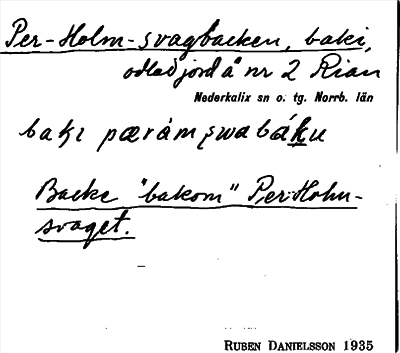 Per-Holm-svagbacken, baki,
odlad jord å nr 2 Rian
Nederkalix sn o. tg. Norrb. län
Backe "bakom" Per-Holm-
svaget.
RUBEN DANIELSSON 1935